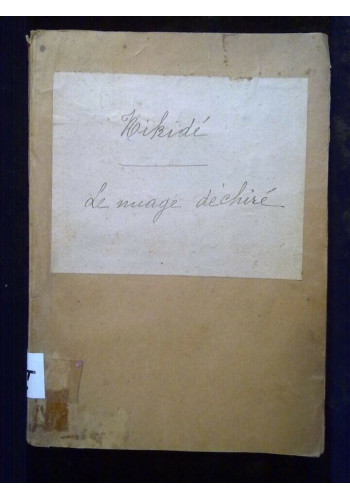 Kikidé
Le nuage déchiré